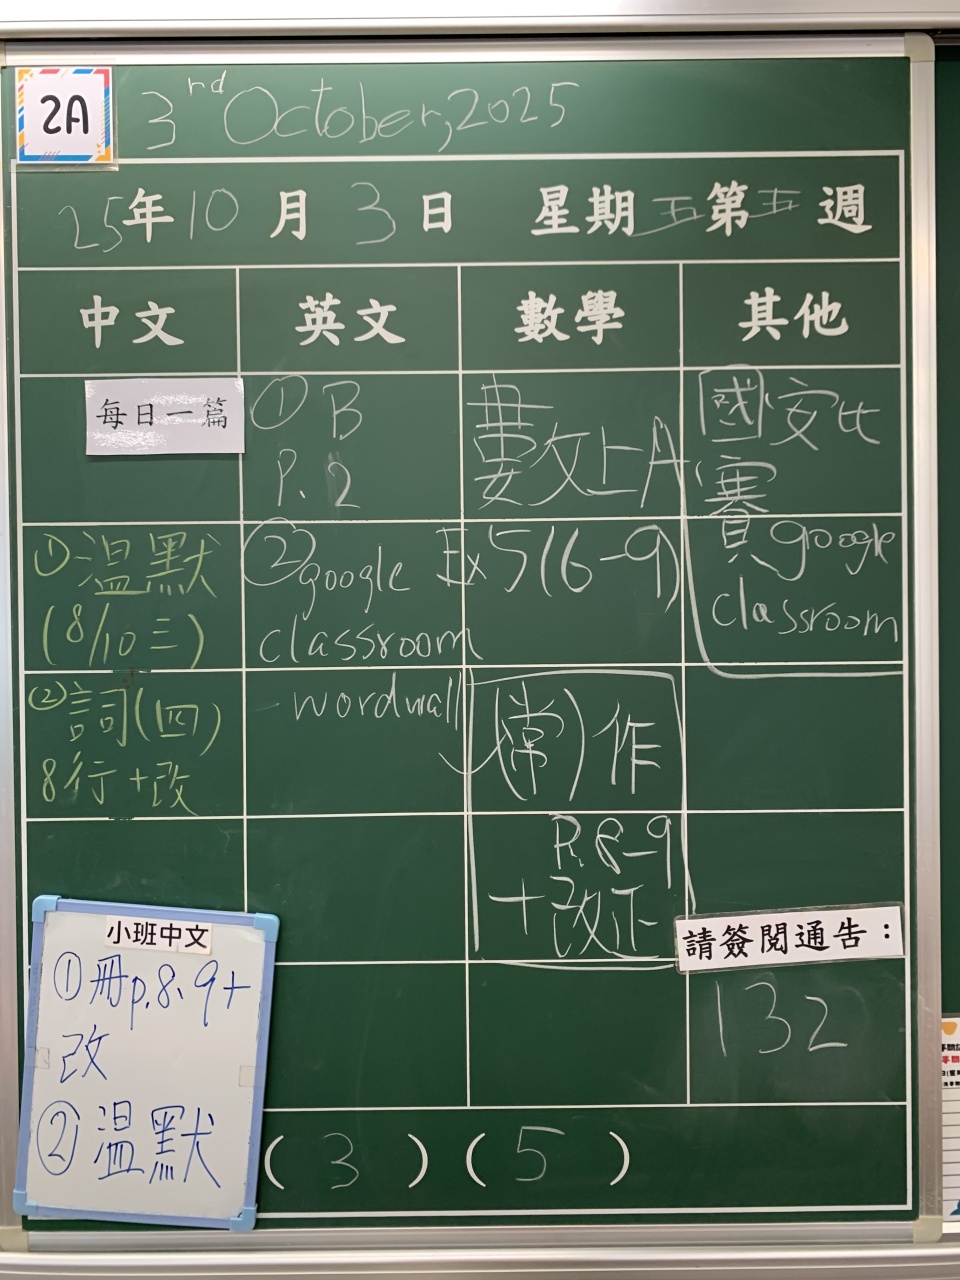 2A
3rd October, 2025
25年10月3日 星期五第五週
中文
英文
數學
其他
每日一篇
①温默
(8/10三)
②詞(四)
8行+改
①B
P.2
②google
classroom
wordwall
數文上A
Ex5(6-9)
(常)作
P.8-9
+改正
國安比
賽google
classroom
請簽閱通告：
132
小班中文
①冊p.8、9+
改
②温默
(3)
(5)